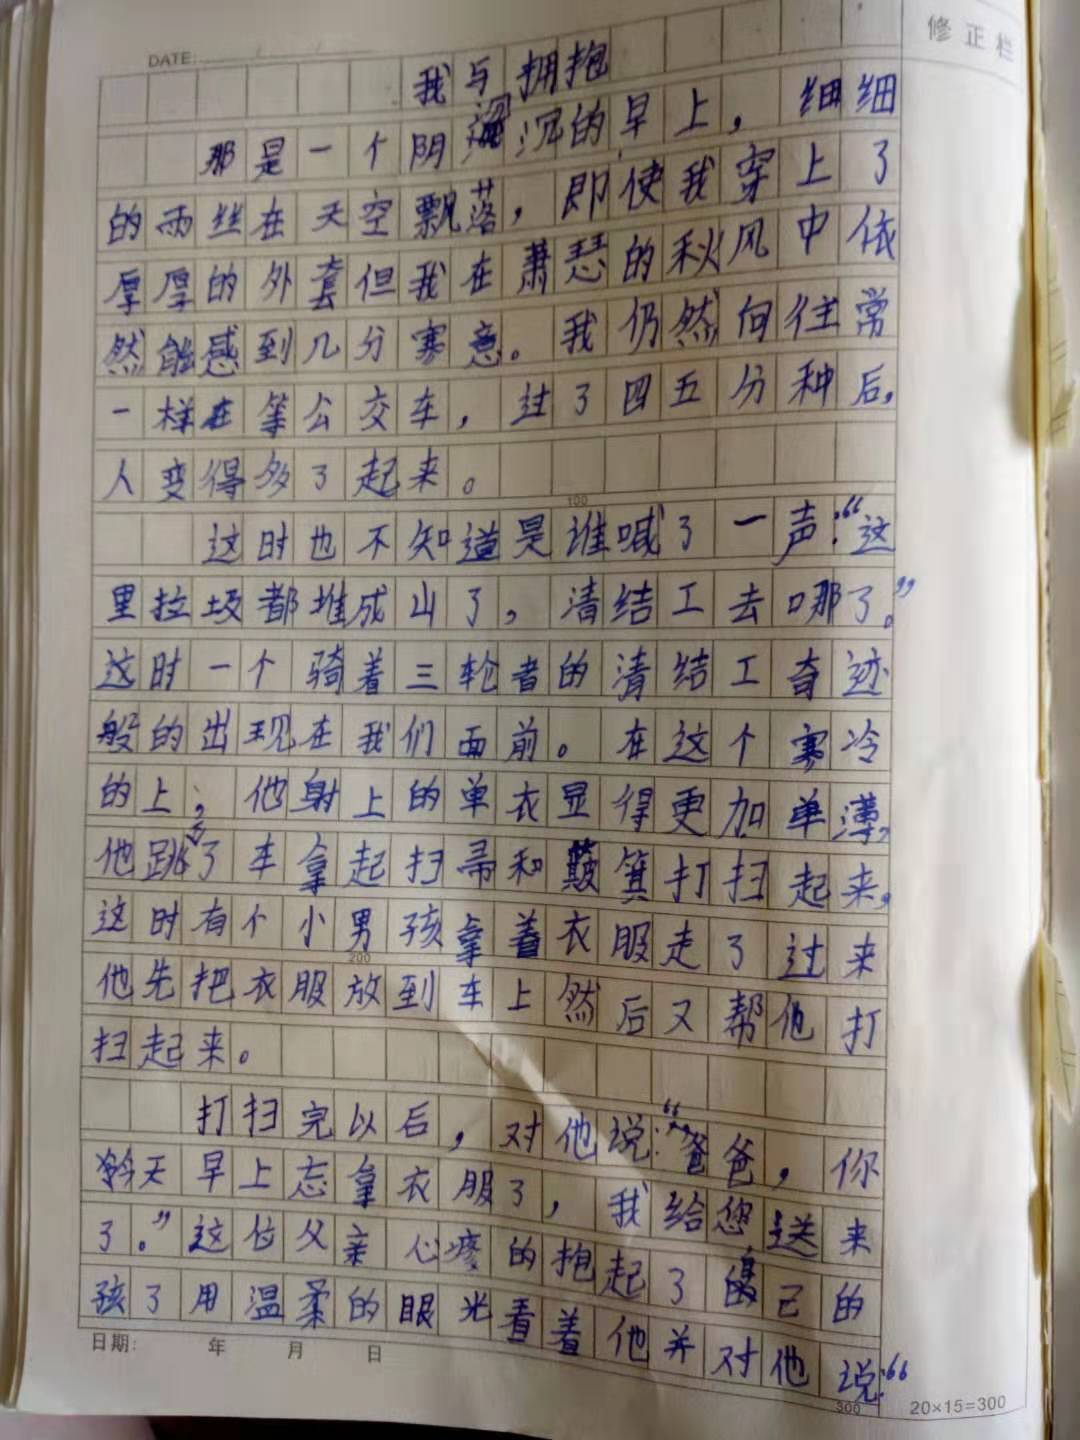 DATE:
修正栏
我与拥抱
那是一个阴沉的早上，细细
的雨丝在天空飘落，即使我穿上了
厚厚的外套但我在萧瑟的秋风中依
然能感到几分寒意。我仍然向往常
一样在等公交车，过了四五分种后，
人变得多了起来。
100
这时也不知道是谁喊了一声：“这
里拉圾都堆成山了，清结工去哪了。”
这时一个骑着三轮者的清结工奇迹
般的出现在我们面前。在这个寒冷
的上，他身上的单衣显得更加单薄，
他跳下了车拿起扫帚和簸箕打扫起来，
这时有个小男孩拿着衣服走了过来
200
他先把衣服放到车上然后又帮他打
扫起来。
打扫完以后，对他说：“爸爸，你
今天早上忘拿衣服了，我给您送来
了。”这位父亲心疼的抱起了自己的
孩了用温柔的眼光看着他并对他说：“
日期： 年 月 日
300
20×15=300